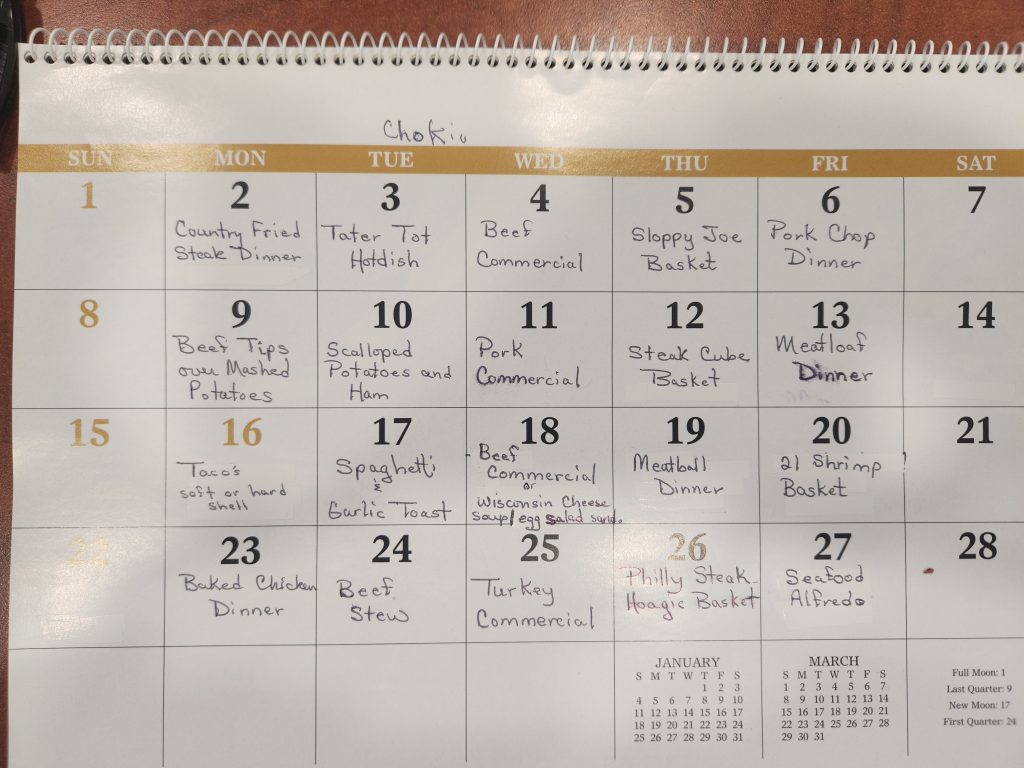 Chokio
SUN MON TUE WED THU FRI SAT
1 2 3 4 5 6 7
Country Fried
Steak Dinner
Tater Tot
Hotdish
Beef
Commercial
Sloppy Joe
Basket
Pork Chop
Dinner
8 9 10 11 12 13 14
Beef Tips
over Mashed
Potatoes
Scalloped
Potatoes and
Ham
Pork
Commercial
Steak Cube
Basket
Meatloaf
Dinner
15 16 17 18 19 20 21
Taco's
soft or hard
shell
Spaghetti
&
Garlic Toast
Beef
Commercial
or
Wisconsin Cheese
soup/egg salad sand.
Meatball
Dinner
21 Shrimp
Basket
22 23 24 25 26 27 28
Baked Chicken
Dinner
Beef
Stew
Turkey
Commercial
Philly Steak
Hoagie Basket
Seafood
Alfredo
JANUARY
S M T W T F S
1 2 3
4 5 6 7 8 9 10
11 12 13 14 15 16 17
18 19 20 21 22 23 24
25 26 27 28 29 30 31
MARCH
S M T W T F S
1 2 3 4 5 6 7
8 9 10 11 12 13 14
15 16 17 18 19 20 21
22 23 24 25 26 27 28
29 30 31
Full Moon: 1
Last Quarter: 9
New Moon: 17
First Quarter: 24